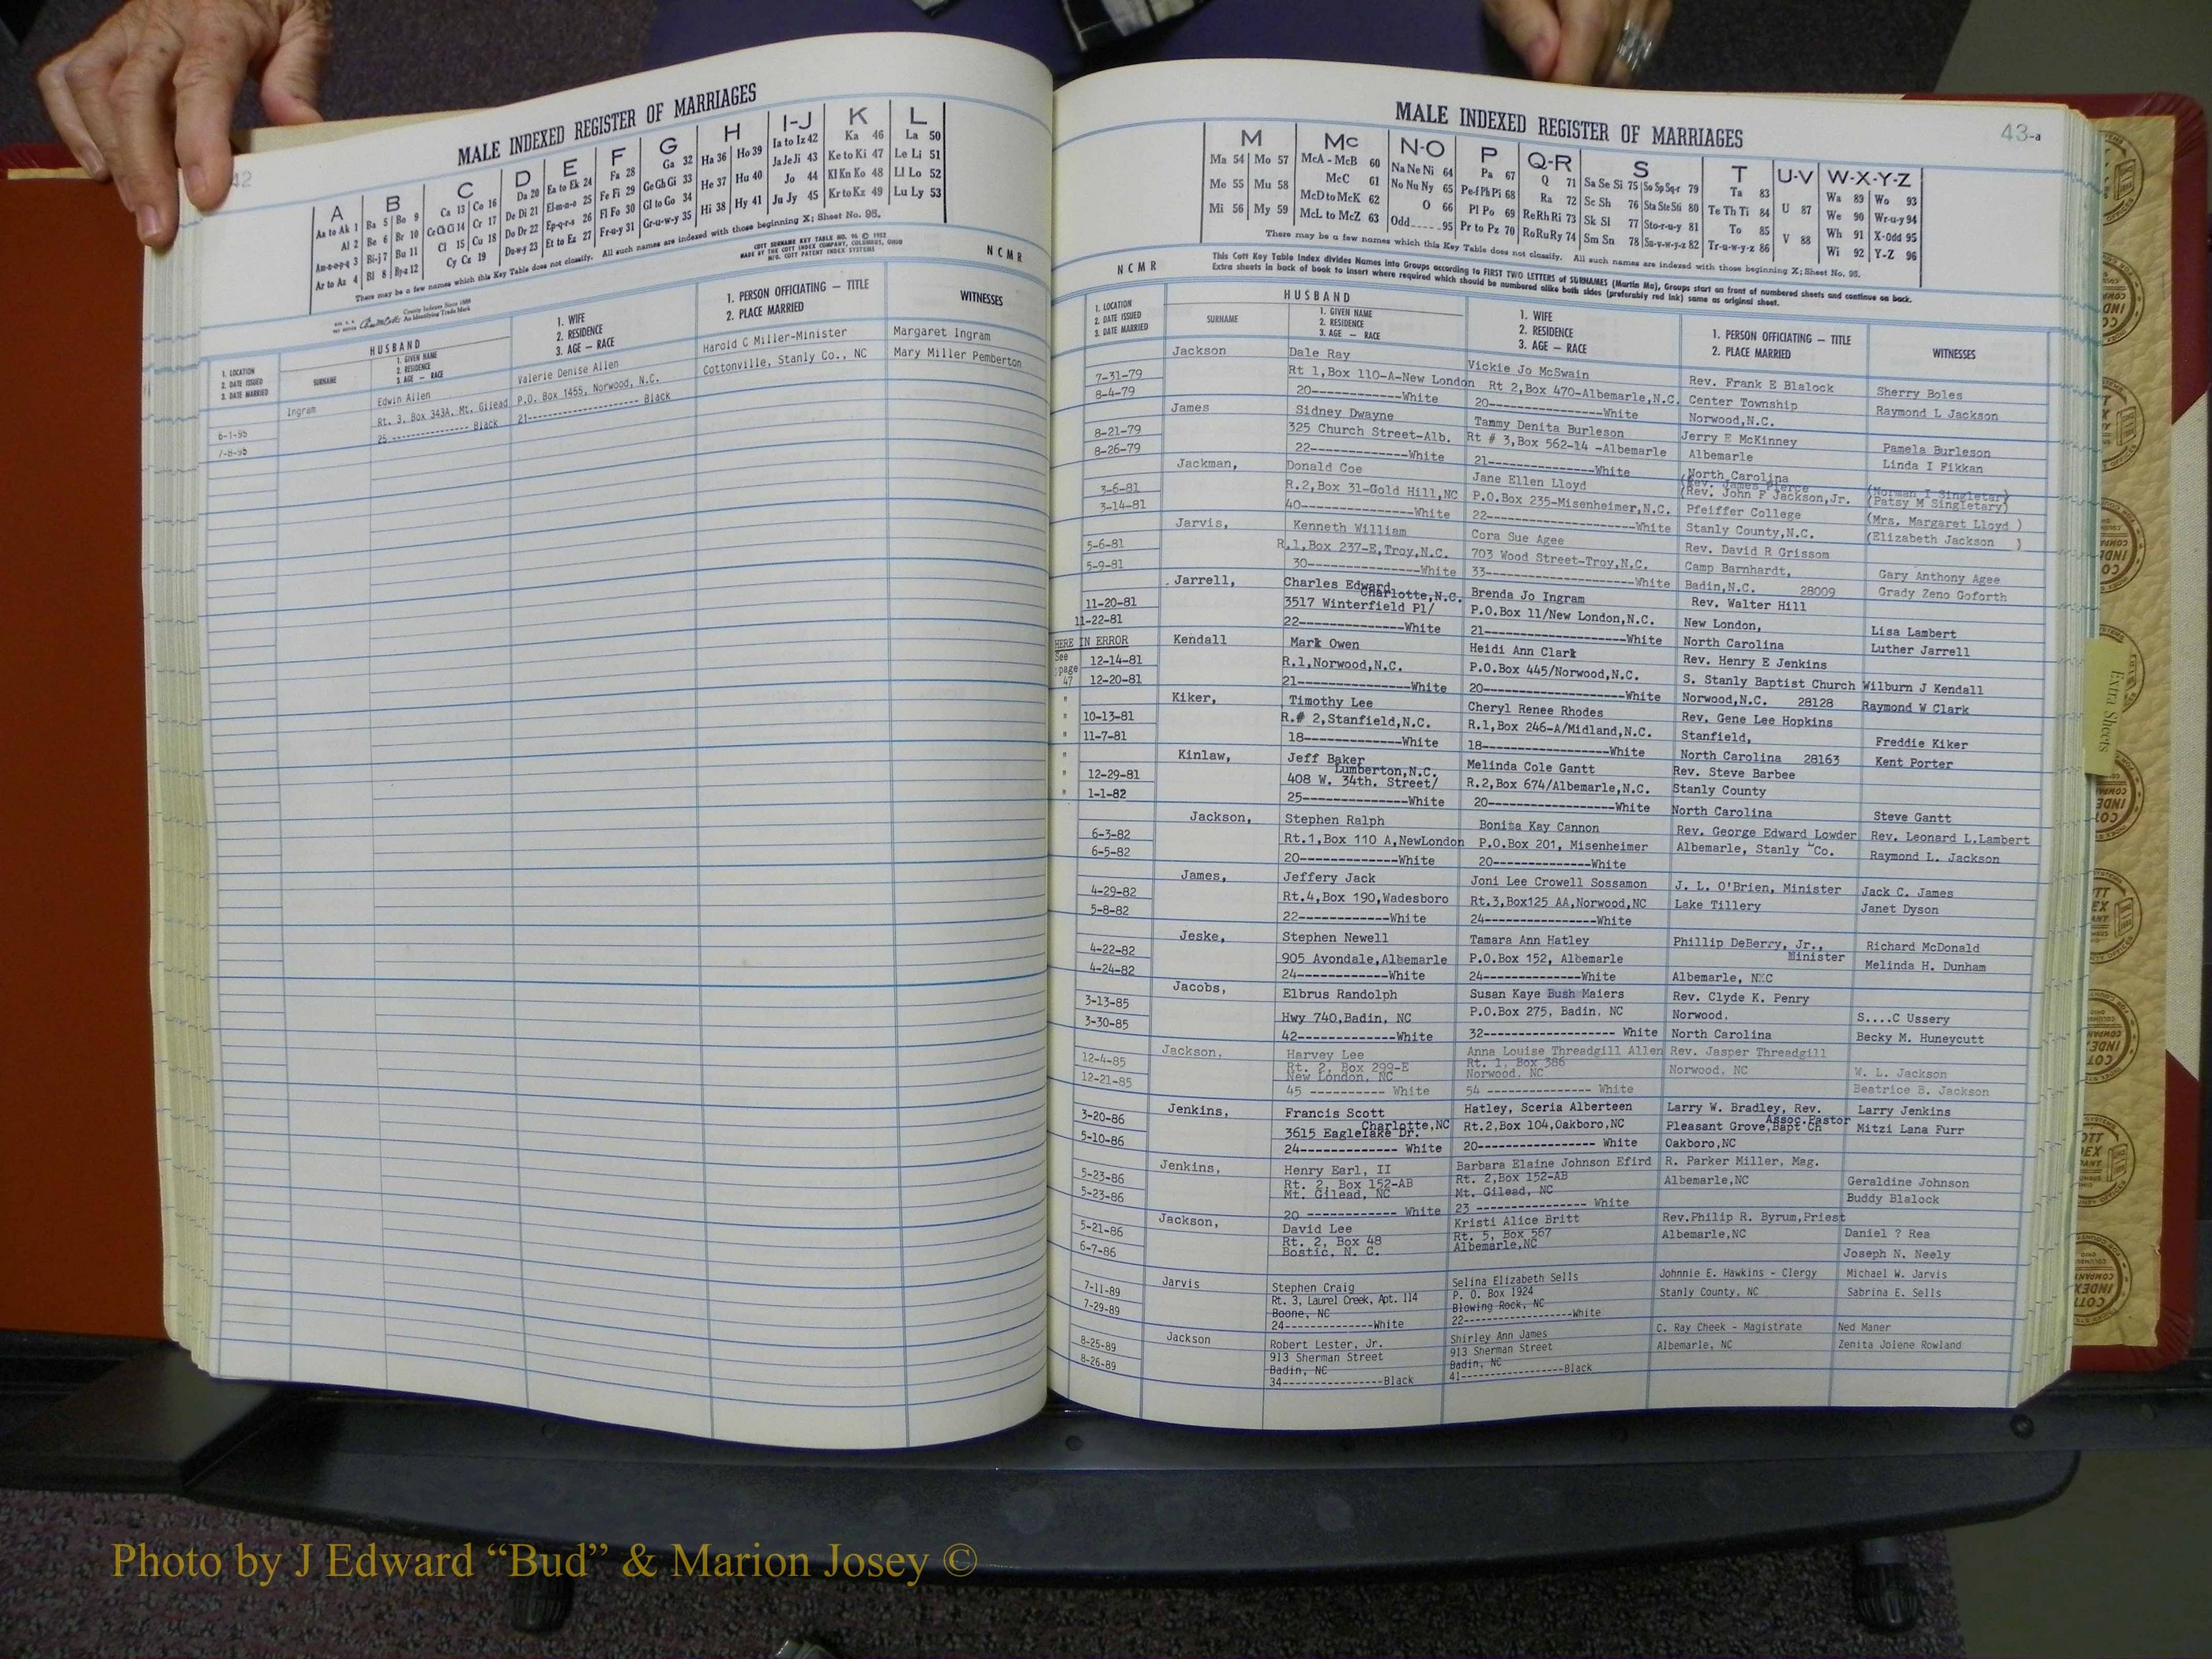 42
MALE INDEXED REGISTER OF MARRIAGES
A B C D E F G H I-J K L
Aa to Ak 1 Ba 5 Bo 9 Ca 13 Co 16 Da 20 Ea to Ek 24 Fa 28 Ga 32 Ha 36 Ho 39 Ia to Iz 42 Ka 46 La 50
Al 2 Be 6 Br 10 Ce Ch Ci 14 Cr 17 De Di 21 El-m-n-o 25 Fe Fi 29 Ge Gh Gi 33 He 37 Hu 40 Ja Je Ji 43 Ke to Ki 47 Le Li 51
Am-n-o-p-q 3 Bi-j 7 Bu 11 Cl 15 Cu 18 Do Dr 22 Ep-q-r-s 26 Fl Fo 30 Gl to Go 34 Hi 38 Hy 41 Jo 44 Kl Kn Ko 48 Ll Lo 52
Ar to Az 4 Bl 8 By-z 12 Cy Cz 19 Du-w-y 23 Et to Ez 27 Fr-u-y 31 Gr-u-w-y 35 Ju Jy 45 Kr to Kz 49 Lu Ly 53
There may be a few names which this Key Table does not classify. All such names are indexed with those beginning X; Sheet No. 95.
County Indexes Since 1888
An Identifying Trade Mark
COTT SURNAME KEY TABLE NO. 96 © 1952
MADE BY THE COTT INDEX COMPANY, COLUMBUS, OHIO
MFG. COTT PATENT INDEX SYSTEMS
N C M R
1. LOCATION
2. DATE ISSUED
3. DATE MARRIED
HUSBAND
SURNAME
1. GIVEN NAME
2. RESIDENCE
3. AGE — RACE
1. WIFE
2. RESIDENCE
3. AGE — RACE
1. PERSON OFFICIATING — TITLE
2. PLACE MARRIED
WITNESSES
Ingram Edwin Allen Valerie Denise Allen Harold C Miller-Minister Margaret Ingram
6-1-95 Rt. 3, Box 343A, Mt. Gilead P.O. Box 1455, Norwood, N.C. Cottonville, Stanly Co., NC Mary Miller Pemberton
7-8-95 25 --------------- Black 21--------------------- Black
43-a
MALE INDEXED REGISTER OF MARRIAGES
M Mc N-O P Q-R S T U-V W-X-Y-Z
Ma 54 Mo 57 McA - McB 60 Na Ne Ni 64 Pa 67 Q 71 Sa Se Si 75 So Sp Sq-r 79 Ta 83 U 87 Wa 89 Wo 93
Me 55 Mu 58 McC 61 No Nu Ny 65 Pe-f Ph Pi 68 Ra 72 Sc Sh 76 Sta Ste Sti 80 Te Th Ti 84 We 90 Wr-u-y 94
Mi 56 My 59 McD to McK 62 O 66 Pl Po 69 Re Rh Ri 73 Sk Sl 77 Sto-r-u-y 81 To 85 V 88 Wh 91 X-Odd 95
McL to McZ 63 Odd 95 Pr to Pz 70 Ro Ru Ry 74 Sm Sn 78 Su-v-w-y-z 82 Tr-u-w-y-z 86 Wi 92 Y-Z 96
There may be a few names which this Key Table does not classify. All such names are indexed with those beginning X; Sheet No. 95.
N C M R
This Cott Key Table Index divides Names into Groups according to FIRST TWO LETTERS of SURNAMES (Martin Ma), Groups start on front of numbered sheets and continue on back.
Extra sheets in back of book to insert where required which should be numbered alike both sides (preferably red ink) same as original sheet.
1. LOCATION
2. DATE ISSUED
3. DATE MARRIED
HUSBAND
SURNAME
1. GIVEN NAME
2. RESIDENCE
3. AGE — RACE
1. WIFE
2. RESIDENCE
3. AGE — RACE
1. PERSON OFFICIATING — TITLE
2. PLACE MARRIED
WITNESSES
Jackson Dale Ray Vickie Jo McSwain Rev. Frank E Blalock Sherry Boles
7-31-79 Rt 1,Box 110-A-New London Rt 2,Box 470-Albemarle,N.C. Center Township Raymond L Jackson
8-4-79 20-------------White 20----------------White Norwood,N.C.
James Sidney Dwayne Tammy Denita Burleson Jerry E McKinney Pamela Burleson
8-21-79 325 Church Street-Alb. Rt # 3,Box 562-14 -Albemarle Albemarle Linda I Fikkan
8-26-79 22-------------White 21---------------White North Carolina
Jackman, Donald Coe Jane Ellen Lloyd (Rev. James Pierce (Norman I Singletary)
3-6-81 R.2,Box 31-Gold Hill,NC P.O.Box 235-Misenheimer,N.C. (Rev. John F Jackson,Jr. (Patsy M Singletary)
3-14-81 40---------------White 22--------------------White Pfeiffer College (Mrs. Margaret Lloyd )
Stanly County,N.C. (Elizabeth Jackson )
Jarvis, Kenneth William Cora Sue Agee Rev. David R Grissom
5-6-81 R.1,Box 237-E,Troy,N.C. 703 Wood Street-Troy,N.C. Camp Barnhardt, Gary Anthony Agee
5-9-81 30---------------White 33--------------------White Badin,N.C. 28009 Grady Zeno Goforth
Jarrell, Charles Edward Brenda Jo Ingram Rev. Walter Hill
Charlotte,N.C.
11-20-81 3517 Winterfield Pl/ P.O.Box 11/New London,N.C. New London, Lisa Lambert
11-22-81 22---------------White 21--------------------White North Carolina Luther Jarrell
HERE IN ERROR Kendall Mark Owen Heidi Ann Clark Rev. Henry E Jenkins
See 12-14-81 R.1,Norwood,N.C. P.O.Box 445/Norwood,N.C. S. Stanly Baptist Church Wilburn J Kendall
page 47 12-20-81 21---------------White 20--------------------White Norwood,N.C. 28128 Raymond W Clark
" Kiker, Timothy Lee Cheryl Renee Rhodes Rev. Gene Lee Hopkins
" 10-13-81 R.# 2,Stanfield,N.C. R.1,Box 246-A/Midland,N.C. Stanfield, Freddie Kiker
" 11-7-81 18--------------White 18------------------White North Carolina 28163 Kent Porter
" Kinlaw, Jeff Baker Melinda Cole Gantt Rev. Steve Barbee
Lumberton,N.C.
" 12-29-81 408 W. 34th. Street/ R.2,Box 674/Albemarle,N.C. Stanly County
" 1-1-82 25--------------White 20------------------White North Carolina Steve Gantt
Jackson, Stephen Ralph Bonita Kay Cannon Rev. George Edward Lowder Rev. Leonard L.Lambert
6-3-82 Rt.1,Box 110 A,NewLondon P.O.Box 201, Misenheimer Albemarle, Stanly Co. Raymond L. Jackson
6-5-82 20-------------White 20-------------White
James, Jeffery Jack Joni Lee Crowell Sossamon J. L. O'Brien, Minister Jack C. James
4-29-82 Rt.4,Box 190,Wadesboro Rt.3,Box125 AA,Norwood,NC Lake Tillery Janet Dyson
5-8-82 22------------White 24-------------White
Jeske, Stephen Newell Tamara Ann Hatley Phillip DeBerry, Jr., Richard McDonald
4-22-82 905 Avondale,Albemarle P.O.Box 152, Albemarle Minister Melinda H. Dunham
4-24-82 24------------White 24------------White Albemarle, NXC
Jacobs, Elbrus Randolph Susan Kaye Bush Maiers Rev. Clyde K. Penry
3-13-85 Hwy 740,Badin, NC P.O.Box 275, Badin, NC Norwood, S....C Ussery
3-30-85 42-------------White 32----------------- White North Carolina Becky M. Huneycutt
Jackson, Harvey Lee Anna Louise Threadgill Allen Rev. Jasper Threadgill
12-4-85 Rt. 2, Box 299-E Rt. 1, Box 386
New London, NC Norwood, NC Norwood, NC W. L. Jackson
12-21-85 45 ---------- White 54 --------------- White Beatrice B. Jackson
Jenkins, Francis Scott Hatley, Sceria Alberteen Larry W. Bradley, Rev. Larry Jenkins
Charlotte,NC Assoc.Pastor
3-20-86 3615 Eaglelake Dr. Rt.2,Box 104,Oakboro,NC Pleasant Grove,Bapt Ch Mitzi Lana Furr
5-10-86 24------------- White 20----------------- White Oakboro,NC
Jenkins, Henry Earl, II Barbara Elaine Johnson Efird R. Parker Miller, Mag.
5-23-86 Rt. 2, Box 152-AB Rt. 2,Box 152-AB Albemarle,NC Geraldine Johnson
5-23-86 Mt. Gilead, NC Mt. Gilead, NC Buddy Blalock
20 ------------- White 23 ---------------- White
Jackson, David Lee Kristi Alice Britt Rev.Philip R. Byrum,Priest
5-21-86 Rt. 2, Box 48 Rt. 5, Box 567 Albemarle,NC Daniel ? Rea
6-7-86 Bostic, N. C. Albemarle,NC Joseph N. Neely
Jarvis Stephen Craig Selina Elizabeth Sells Johnnie E. Hawkins - Clergy Michael W. Jarvis
7-11-89 Rt. 3, Laurel Creek, Apt. 114 P. O. Box 1924 Stanly County, NC Sabrina E. Sells
7-29-89 Boone, NC Blowing Rock, NC
24---------------White 22------------------White
Jackson Robert Lester, Jr. Shirley Ann James C. Ray Cheek - Magistrate Ned Maner
8-25-89 913 Sherman Street 913 Sherman Street Albemarle, NC Zenita Jolene Rowland
8-26-89 Badin, NC Badin, NC
34-----------------Black 41-----------------Black
Extra Sheets
Photo by J Edward “Bud” & Marion Josey ©